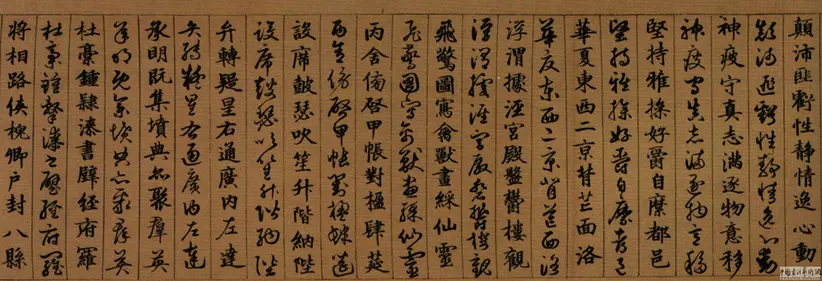 顛沛匪虧性靜情逸心動
顛沛匪虧性靜情逸心動
神疲守真志滿逐物意移
神疲守真志滿逐物意移
堅持雅操好爵自縻都邑
堅持雅操好爵自縻都邑
華夏東西二京背芒面洛
華夏東西二京背芒面洛
浮渭據涇宮殿盤鬱樓觀
浮渭據涇宮殿盤鬱樓觀
飛驚圖寫禽獸畫綵仙靈
飛驚圖寫禽獸畫綵仙靈
丙舍傍啓甲帳對楹肆筵
丙舍傍啓甲帳對楹肆筵
設席鼓瑟吹笙升階納陛
設席鼓瑟吹笙升階納陛
弁轉疑星右通廣內左達
弁轉疑星右通廣內左達
承明既集墳典亦聚群英
承明既集墳典亦聚群英
杜稾鍾隸漆書壁經府羅
杜稾鍾隸漆書壁經府羅
將相路俠槐卿戶封八縣